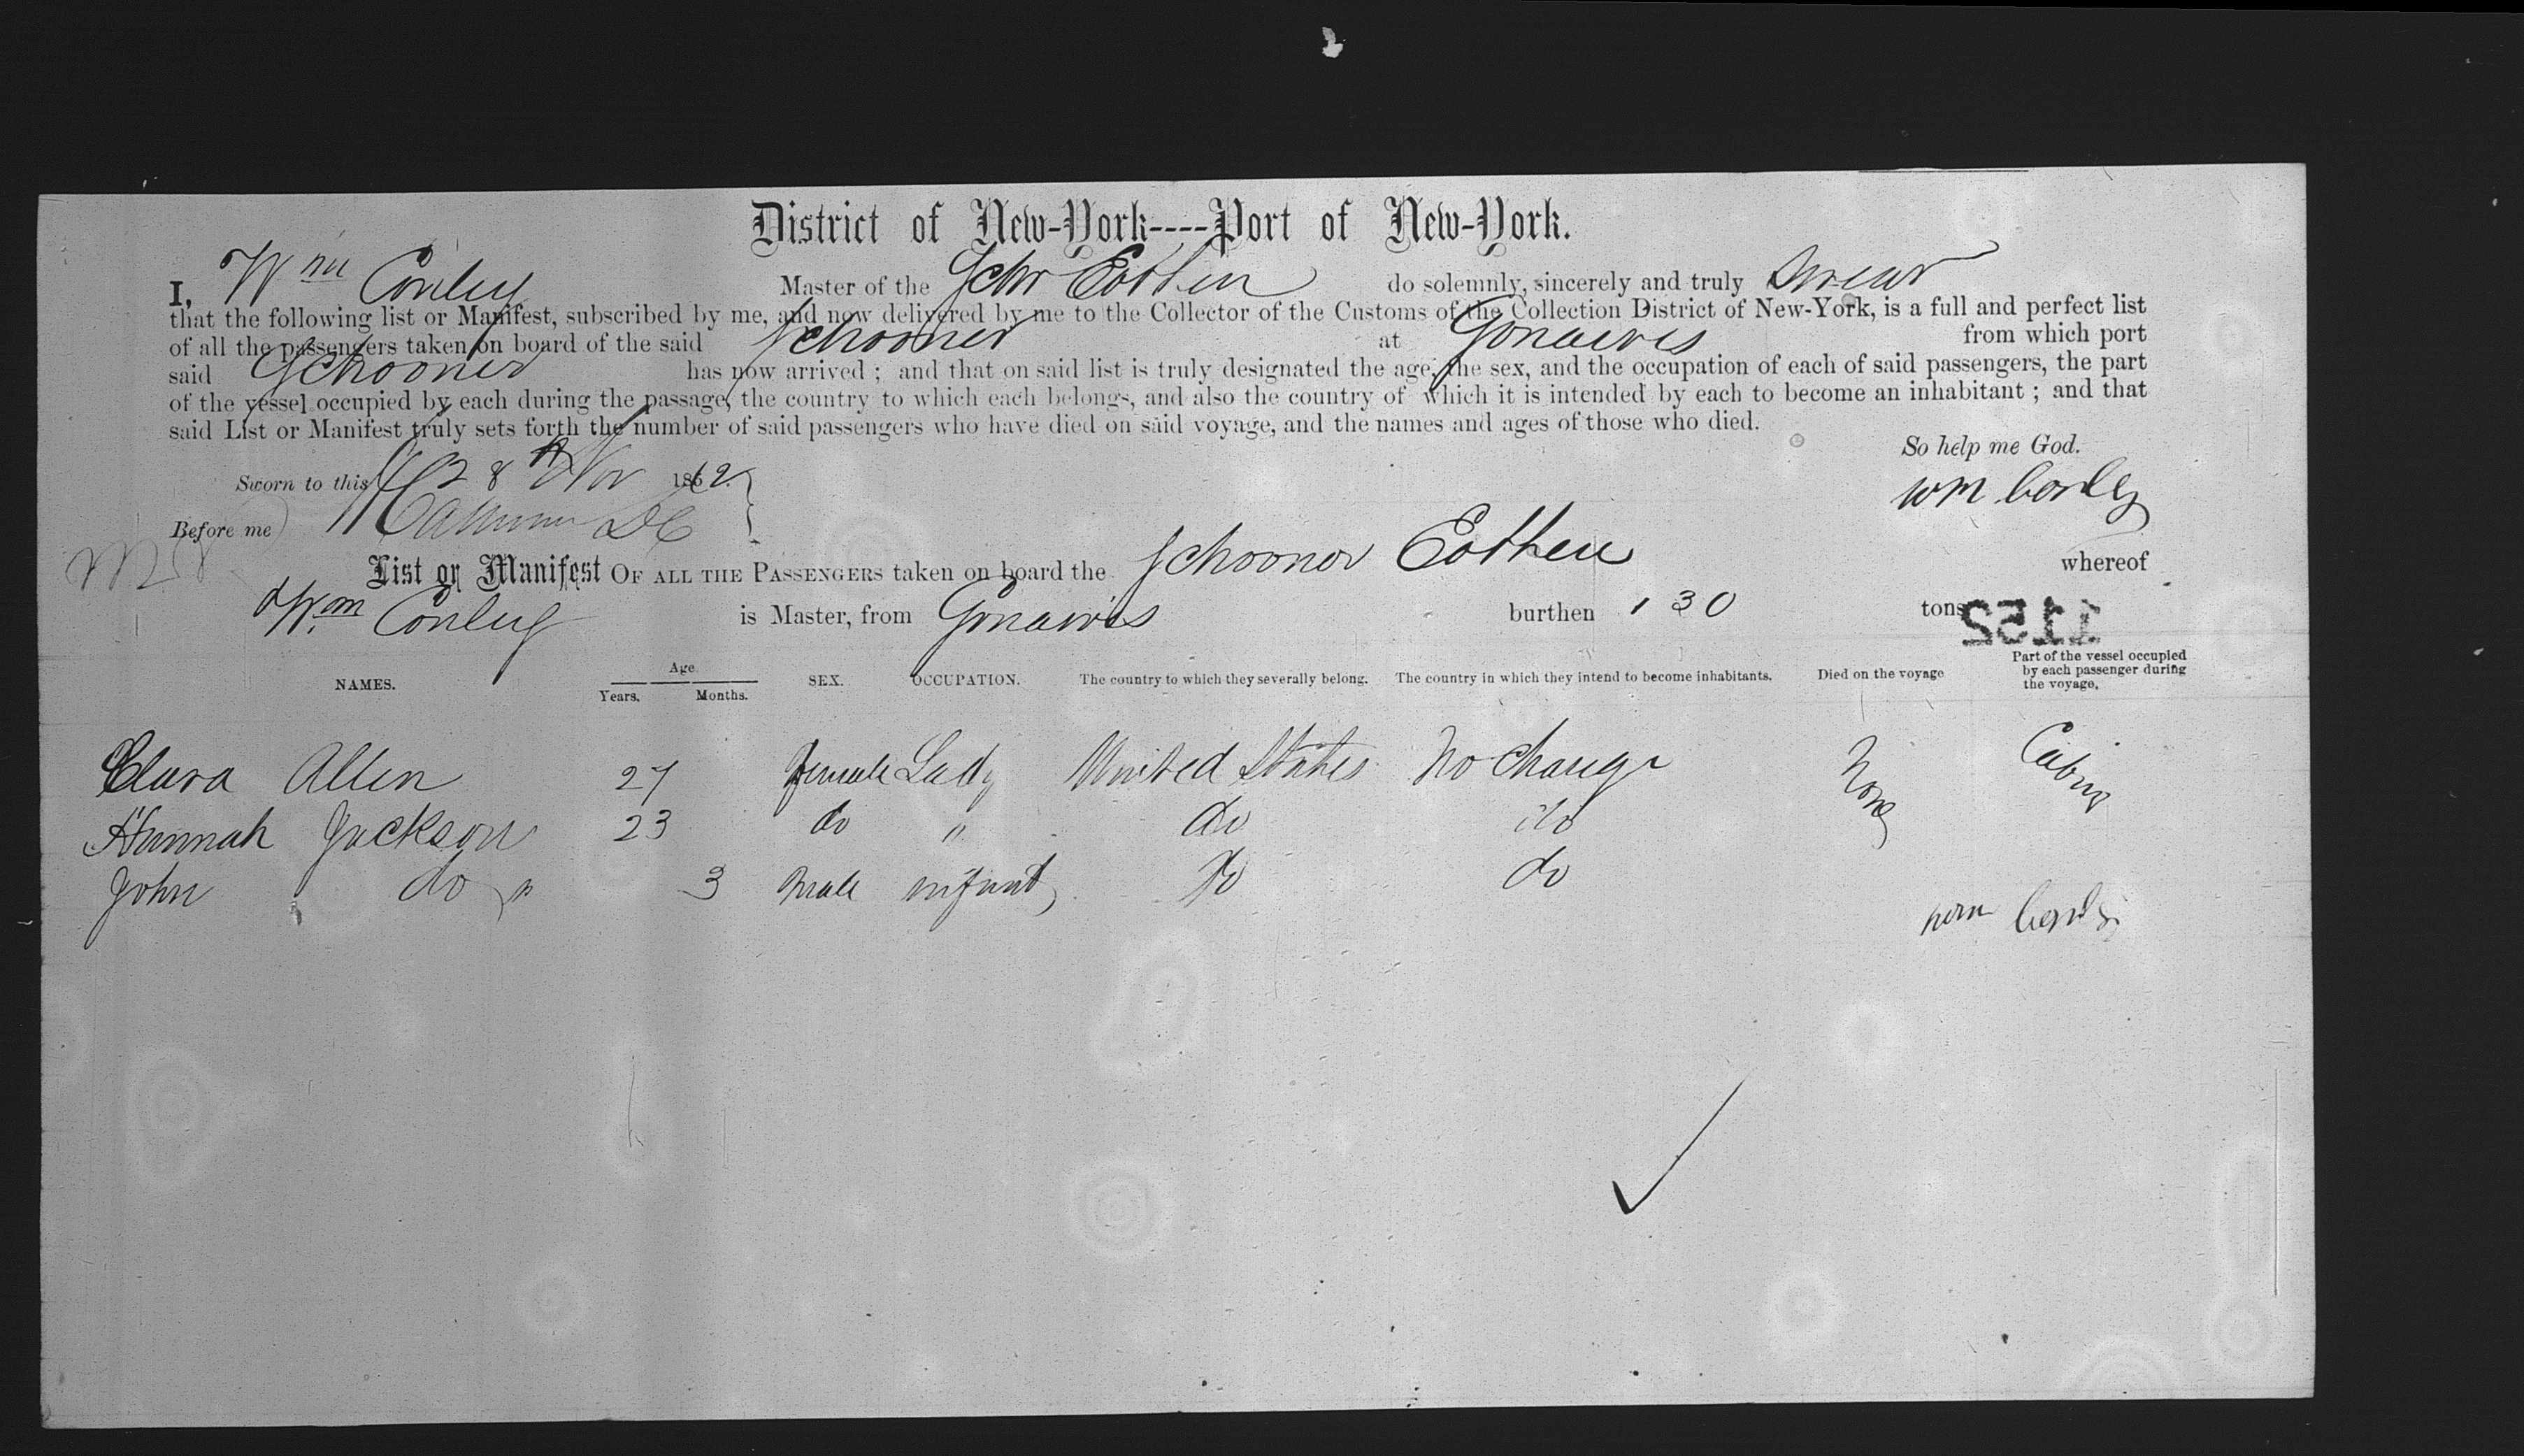 District of New-York----Port of New-York.
I, Wm Conley Master of the Schr Eothen do solemnly, sincerely and truly swear
that the following list or Manifest, subscribed by me, and now delivered by me to the Collector of the Customs of the Collection District of New-York, is a full and perfect list
of all the passengers taken on board of the said Schooner at Gonaives from which port
said Schooner has now arrived ; and that on said list is truly designated the age, the sex, and the occupation of each of said passengers, the part
of the vessel occupied by each during the passage, the country to which each belongs, and also the country of which it is intended by each to become an inhabitant ; and that
said List or Manifest truly sets forth the number of said passengers who have died on said voyage, and the names and ages of those who died.
So help me God.
Sworn to this 28th Nov 1862
Wm Conley
Before me
List or Manifest OF ALL THE PASSENGERS taken on board the Schooner Eothen whereof
Wm Conley is Master, from Gonaives burthen 130 tons
1152
NAMES. Age Years. Months. SEX. OCCUPATION. The country to which they severally belong. The country in which they intend to become inhabitants. Died on the voyage Part of the vessel occupied by each passenger during the voyage,
Clara Allen 27 female Lady United States No change None Cabin
Hannah Jackson 23 do " do do
John do " 3 male infant do do
Wm Conley